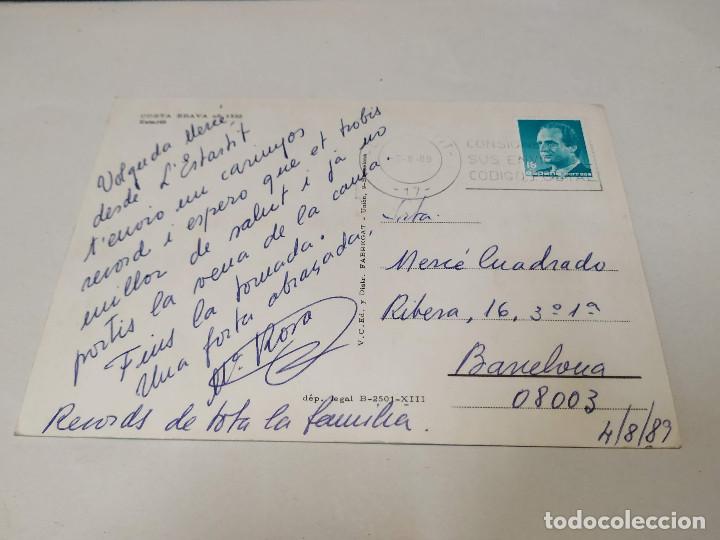 COSTA BRAVA
Volguda Mercè,
desde L'Estartit
t'envio un carinyos
record i espero que et trobis
millor de salut i ja no
portis la vena de la cama.
Fins la tornada.
Una forta abraçada.
Mª Rosa
Records de tota la familia.
V. C. Ed. y Distr. FABREGAT - Unión,
dép. legal B-2501-XIII
-8-89
-17-
CONSIG
SUS EN
CODIGO POSTAL
18
españa
Srta.
Mercè Cuadrado
Ribera, 16, 3º 1ª
Barcelona
08003
4/8/89
todocoleccion.net